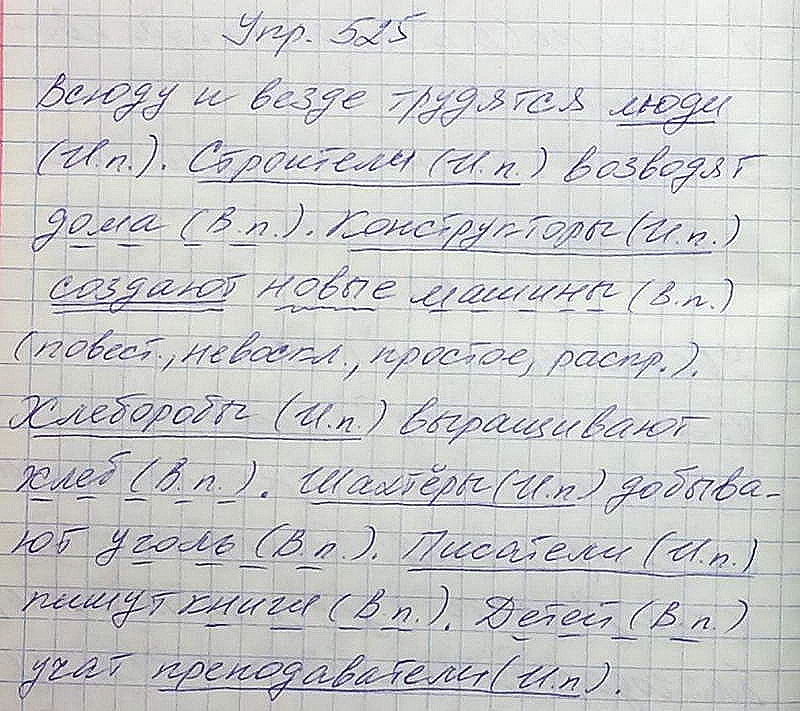 Упр. 525
Всюду и везде трудятся люди
(И.п.). Строители (И.п.) возводят
дома (В.п.). Конструкторы (И.п.)
создают новые машины (В.п.)
(повест., невоскл., простое, распр.).
Хлеборобы (И.п.) выращивают
хлеб (В.п.). Шахтёры (И.п) добыва-
ют уголь (В.п.). Писатели (И.п.)
пишут книги (В.п.). Детей (В.п.)
учат преподаватели (И.п).